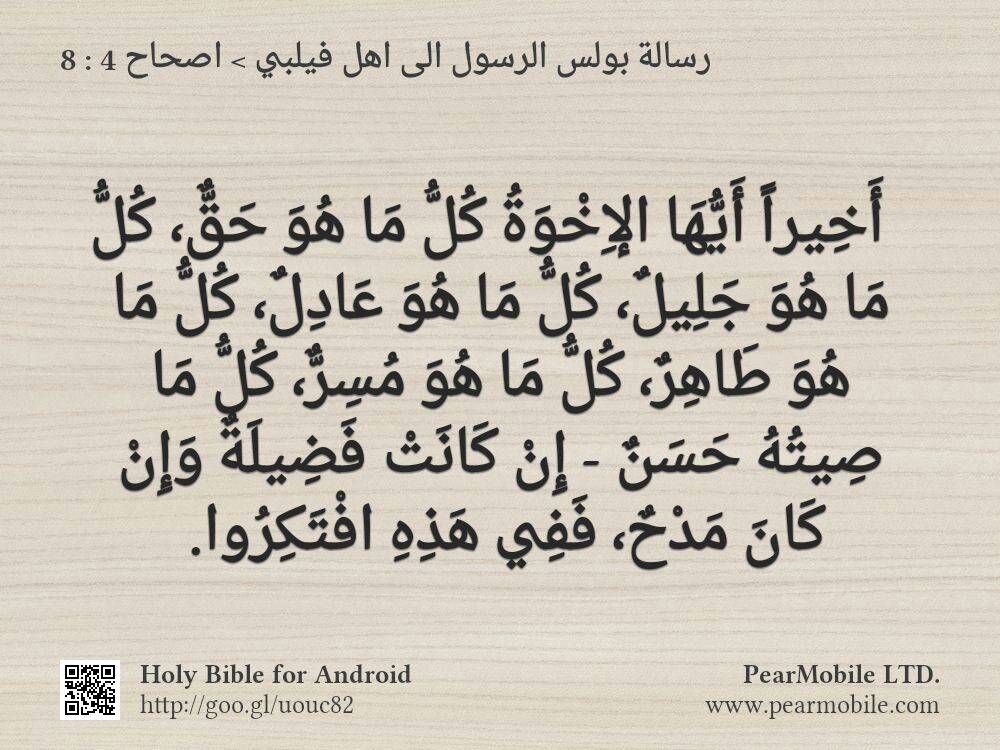 رسالة بولس الرسول الى اهل فيلبي > اصحاح 4 : 8
أَخِيراً أَيُّهَا الإِخْوَةُ كُلُّ مَا هُوَ حَقٌّ، كُلُّ
مَا هُوَ جَلِيلٌ، كُلُّ مَا هُوَ عَادِلٌ، كُلُّ مَا
هُوَ طَاهِرٌ، كُلُّ مَا هُوَ مُسِرٌّ، كُلُّ مَا
صِيتُهُ حَسَنٌ - إِنْ كَانَتْ فَضِيلَةٌ وَإِنْ
كَانَ مَدْحٌ، فَفِي هَذِهِ افْتَكِرُوا.
Holy Bible for Android
http://goo.gl/uouc82
PearMobile LTD.
www.pearmobile.com